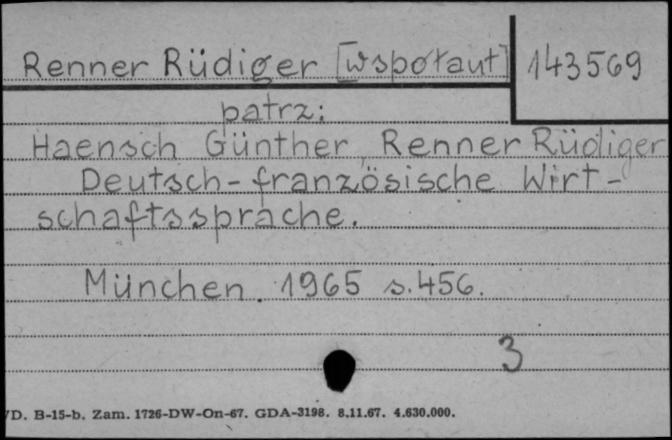 Renner Rüdiger [współaut] 143569
patrz:
Haensch Günther, Renner Rüdiger
Deutsch-französische Wirt-
schaftssprache.
München. 1965 s. 456.
3
/D. B-15-b. Zam. 1726-DW-On-67. GDA-3198. 8.11.67. 4.630.000.